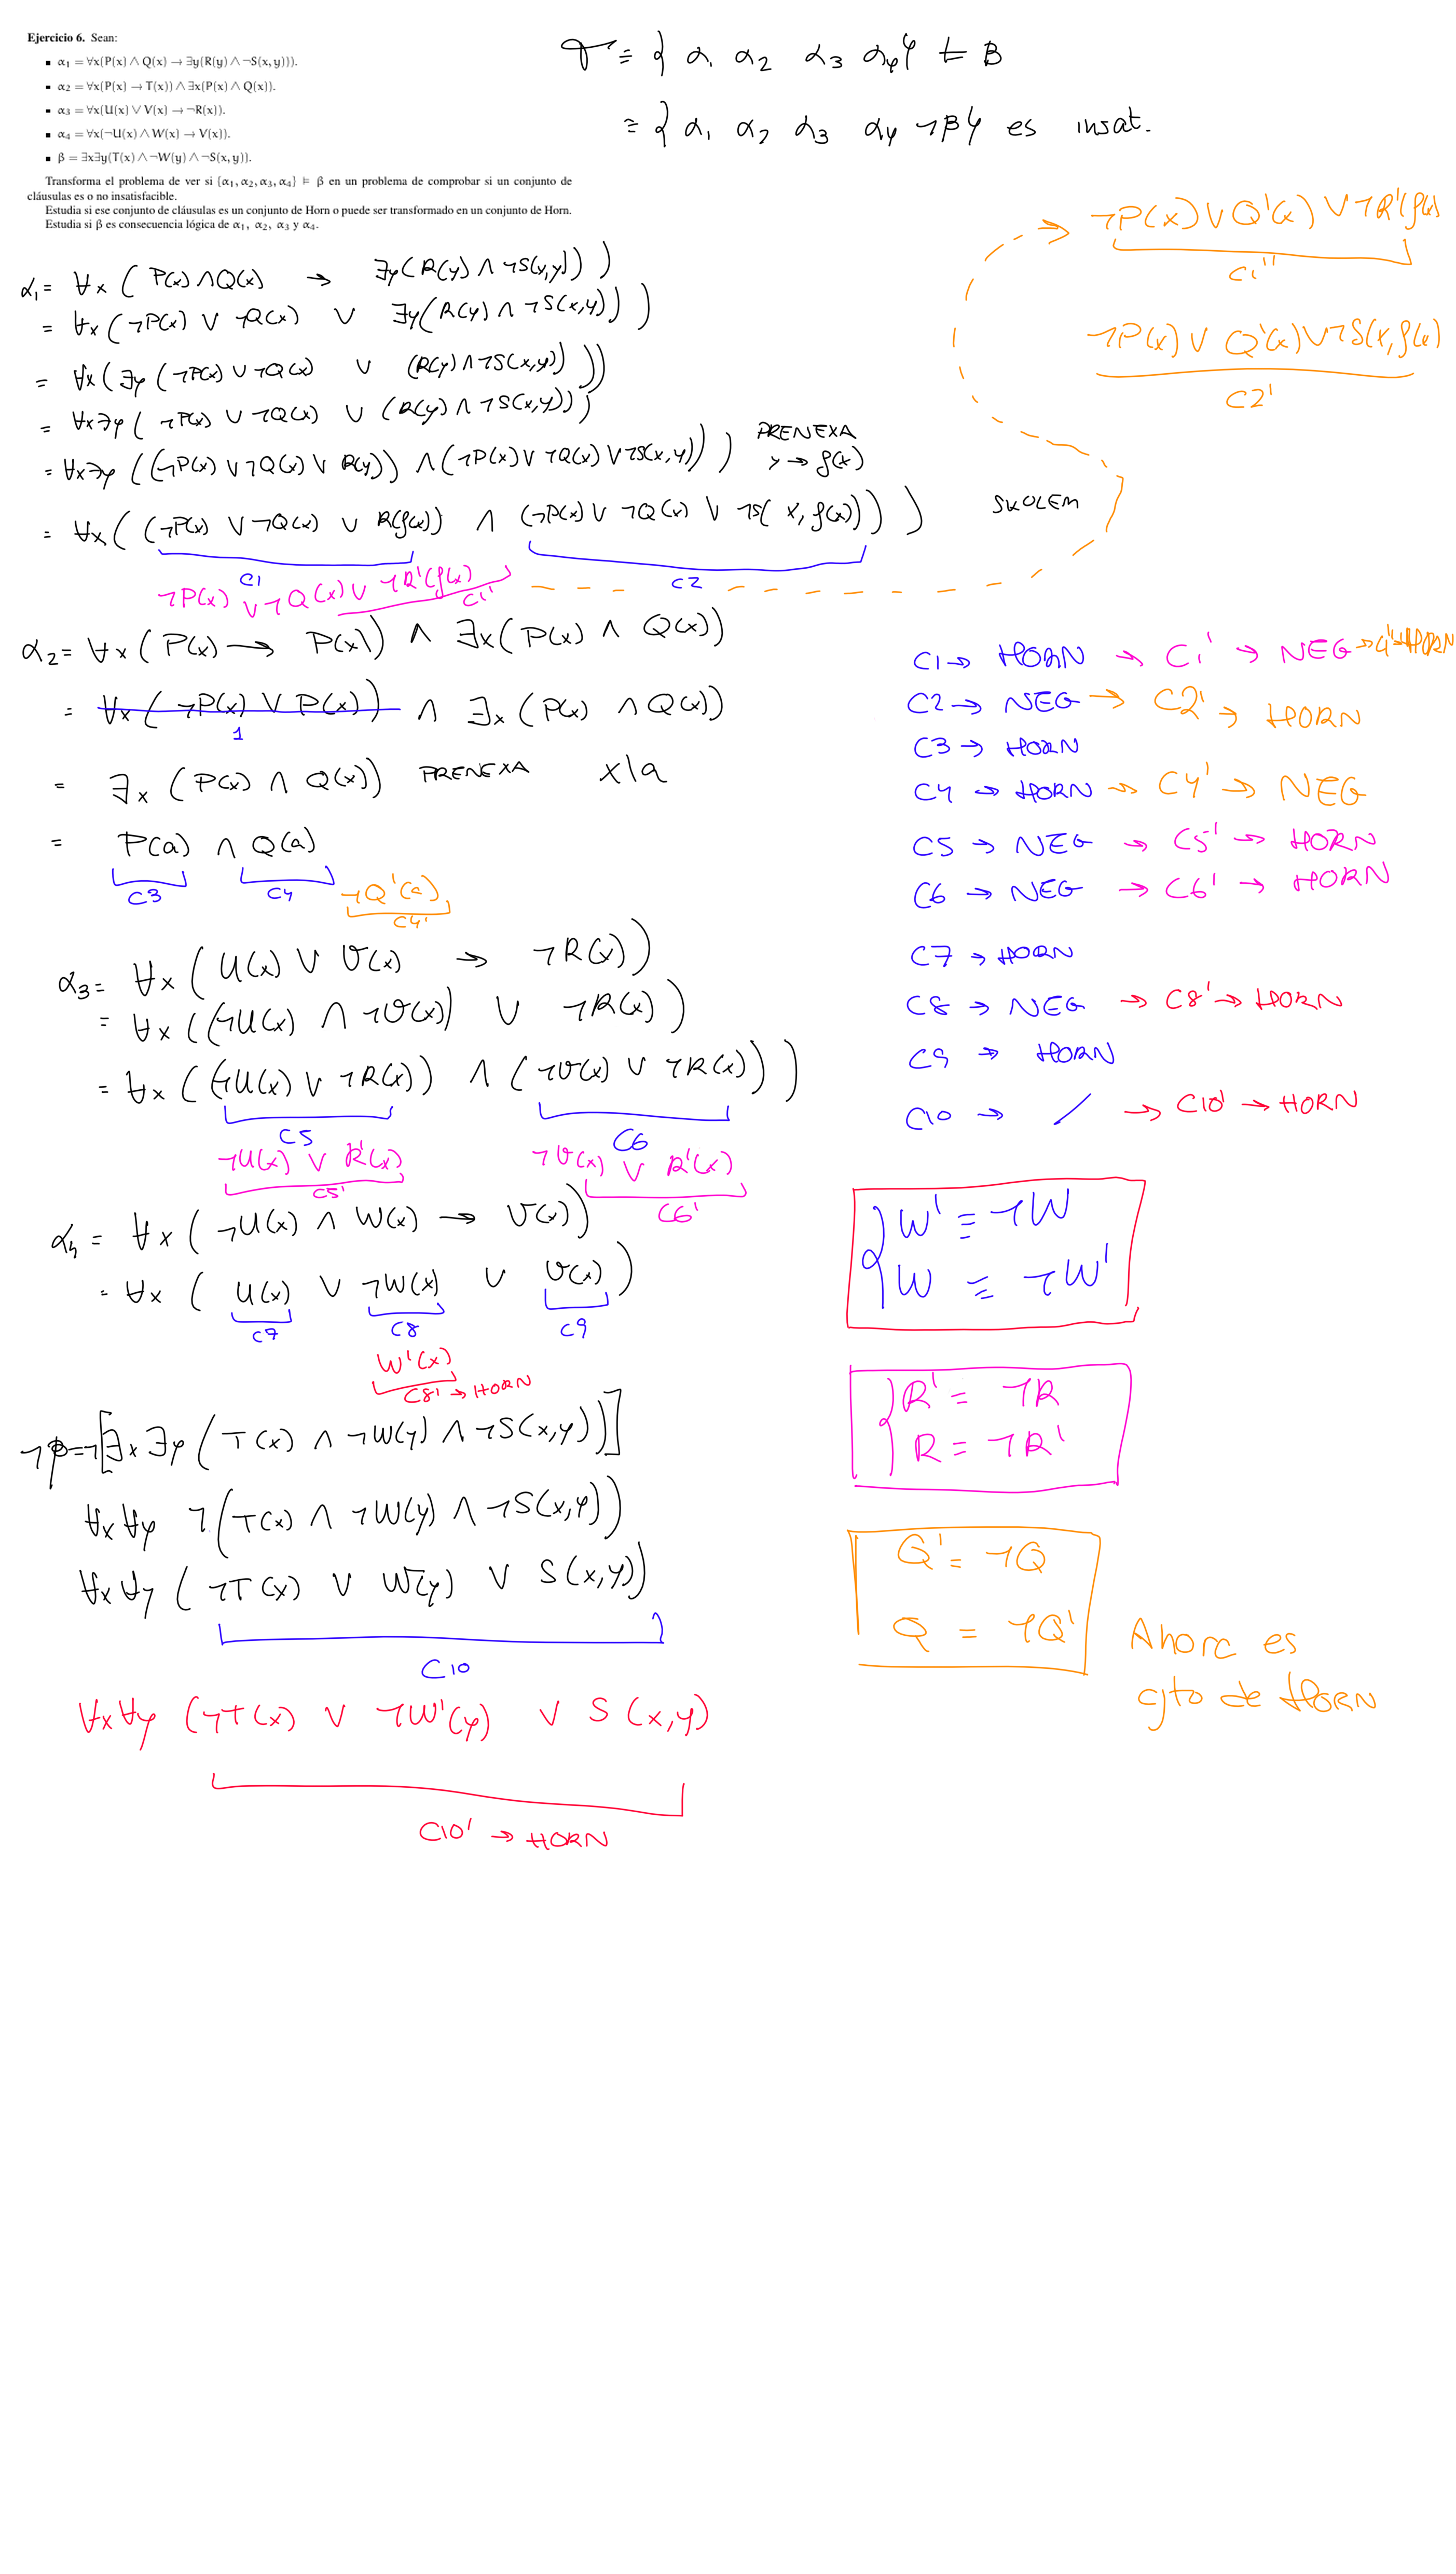 Ejercicio 6. Sean:
▪ α₁ = ∀x(P(x) ∧ Q(x) → ∃y(R(y) ∧ ¬S(x,y))).
▪ α₂ = ∀x(P(x) → T(x)) ∧ ∃x(P(x) ∧ Q(x)).
▪ α₃ = ∀x(U(x) ∨ V(x) → ¬R(x)).
▪ α₄ = ∀x(¬U(x) ∧ W(x) → V(x)).
▪ β = ∃x∃y(T(x) ∧ ¬W(y) ∧ ¬S(x,y)).
Transforma el problema de ver si {α₁, α₂, α₃, α₄} ⊨ β en un problema de comprobar si un conjunto de
cláusulas es o no insatisfacible.
Estudia si ese conjunto de cláusulas es un conjunto de Horn o puede ser transformado en un conjunto de Horn.
Estudia si β es consecuencia lógica de α₁, α₂, α₃ y α₄.
= { α₁ α₂ α₃ α₄ } ⊨ B
= { α₁ α₂ α₃ α₄ ¬β } es insat.
¬P(x) ∨ Q'(x) ∨ ¬R'(f(x)
C1''
¬P(x) ∨ Q'(x) ∨ ¬S(x, f(x)
C2'
α₁ = ∀x ( P(x) ∧ Q(x) → ∃y(R(y) ∧ ¬S(x,y)) )
= ∀x (¬P(x) ∨ ¬Q(x) ∨ ∃y(R(y) ∧ ¬S(x,y)) )
= ∀x (∃y (¬P(x) ∨ ¬Q(x) ∨ (R(y) ∧ ¬S(x,y)) ))
= ∀x∃y ( ¬P(x) ∨ ¬Q(x) ∨ (R(y) ∧ ¬S(x,y)))
= ∀x∃y ((¬P(x) ∨ ¬Q(x) ∨ R(y)) ∧ (¬P(x) ∨ ¬Q(x) ∨ ¬S(x,y)) ) PRENEXA
y → f(x)
= ∀x ( (¬P(x) ∨ ¬Q(x) ∨ R(f(x)) ∧ (¬P(x) ∨ ¬Q(x) ∨ ¬S( x, f(x))) ) SKOLEM
C1 C2
¬P(x) ∨ ¬Q(x) ∨ ¬R'(f(x)
C1'
α₂ = ∀x ( P(x) → P(x)) ∧ ∃x (P(x) ∧ Q(x))
= ∀x ( ¬P(x) ∨ P(x)) ∧ ∃x (P(x) ∧ Q(x))
1
= ∃x (P(x) ∧ Q(x)) PRENEXA x\a
= P(a) ∧ Q(a)
C3 C4
¬Q'(a)
C4'
α₃ = ∀x ( U(x) ∨ V(x) → ¬R(x))
= ∀x ((¬U(x) ∧ ¬V(x)) ∨ ¬R(x) )
= ∀x ( (¬U(x) ∨ ¬R(x)) ∧ (¬V(x) ∨ ¬R(x)) )
C5 C6
¬U(x) ∨ R'(x) ¬V(x) ∨ R'(x)
C5' C6'
α₄ = ∀x ( ¬U(x) ∧ W(x) → V(x))
= ∀x ( U(x) ∨ ¬W(x) ∨ V(x) )
C7 C8 C9
W'(x)
C8' → HORN
¬β = ¬[∃x ∃y ( T(x) ∧ ¬W(y) ∧ ¬S(x,y))]
∀x ∀y ¬(T(x) ∧ ¬W(y) ∧ ¬S(x,y))
∀x ∀y ( ¬T(x) ∨ W(y) ∨ S(x,y))
C10
∀x ∀y (¬T(x) ∨ ¬W'(y) ∨ S(x,y)
C10' → HORN
C1 → HORN → C1' → NEG → C1'' → HORN
C2 → NEG → C2' → HORN
C3 → HORN
C4 → HORN → C4' → NEG
C5 → NEG → C5' → HORN
C6 → NEG → C6' → HORN
C7 → HORN
C8 → NEG → C8' → HORN
C9 → HORN
C10 → / → C10' → HORN
W' ≡ ¬W
W ≡ ¬W'
R' = ¬R
R = ¬R'
Q' = ¬Q
Q = ¬Q'
Ahora es
cjto de HORN